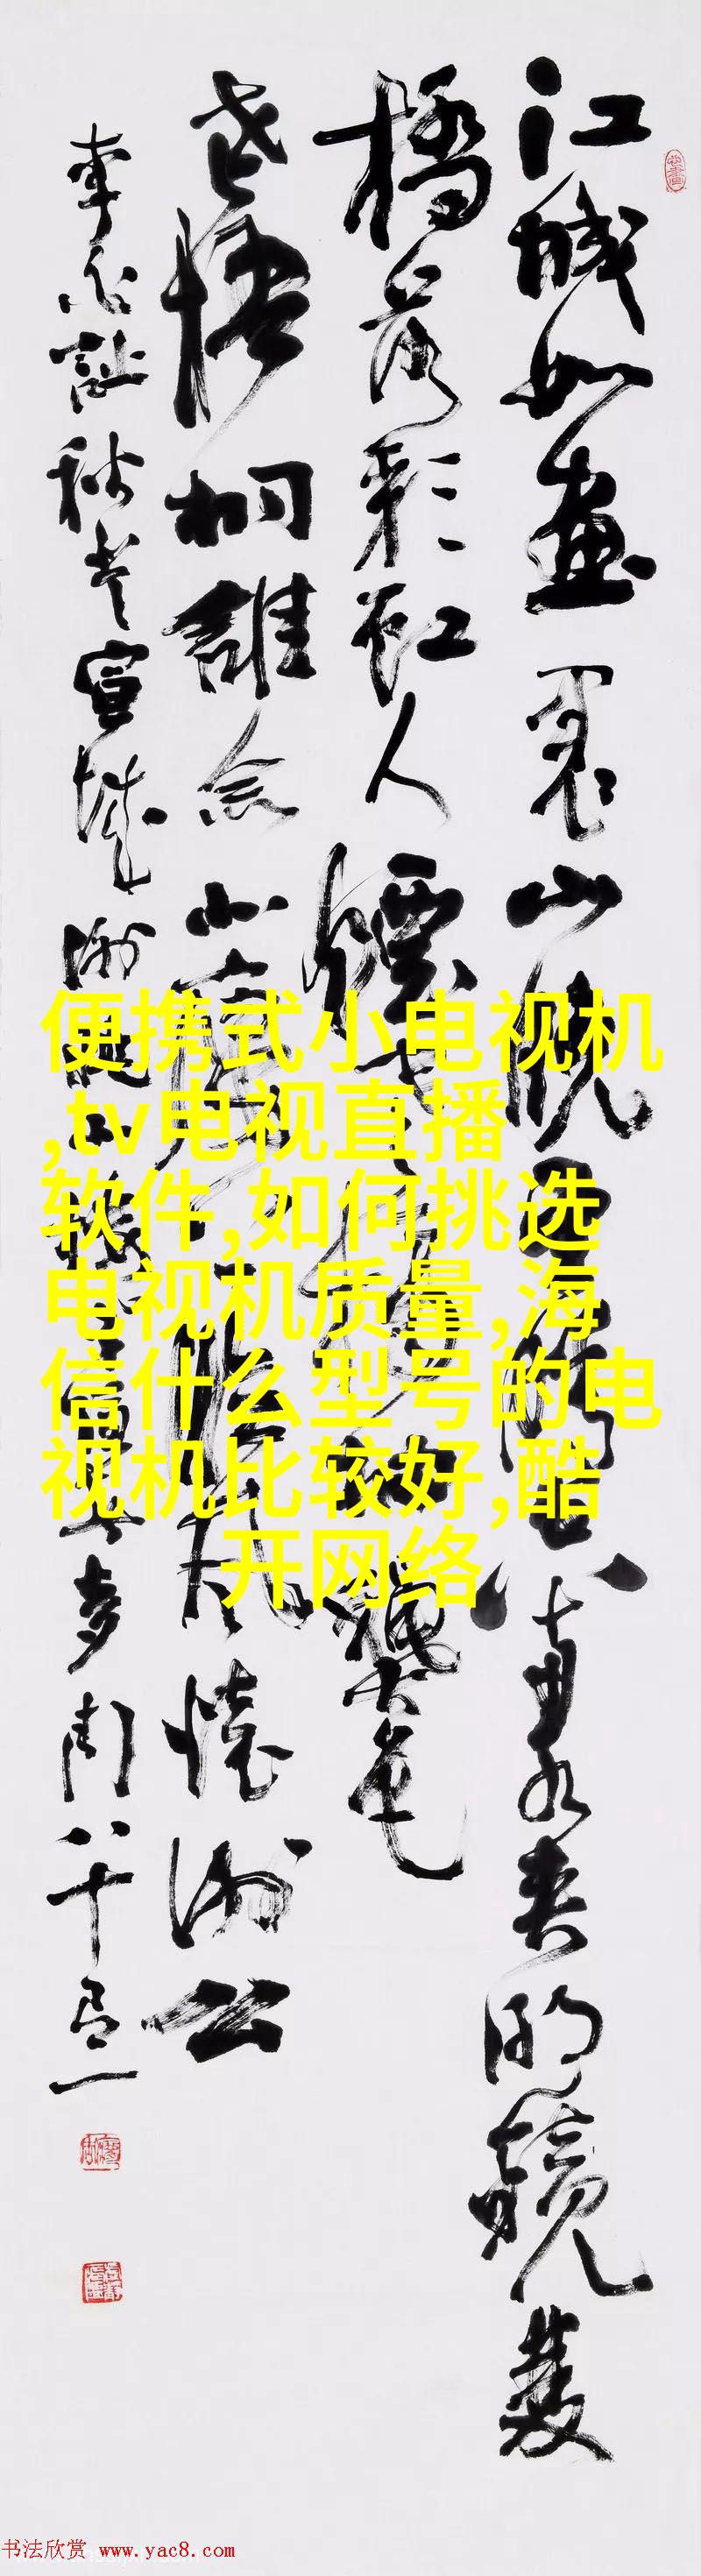 江城如画里山晓望晴空两水夹明镜双
橋落彩虹人烟寒橘柚秋色
老梧桐誰念北楼上临风懐谢公
李白詩秋登宣城谢朓北楼
便携式小电视机
,tv电视直播
软件,如何挑选
电视机质量,海
信什么型号的电
视机比较好,酷
开网络
书法欣赏 www.yac8.com